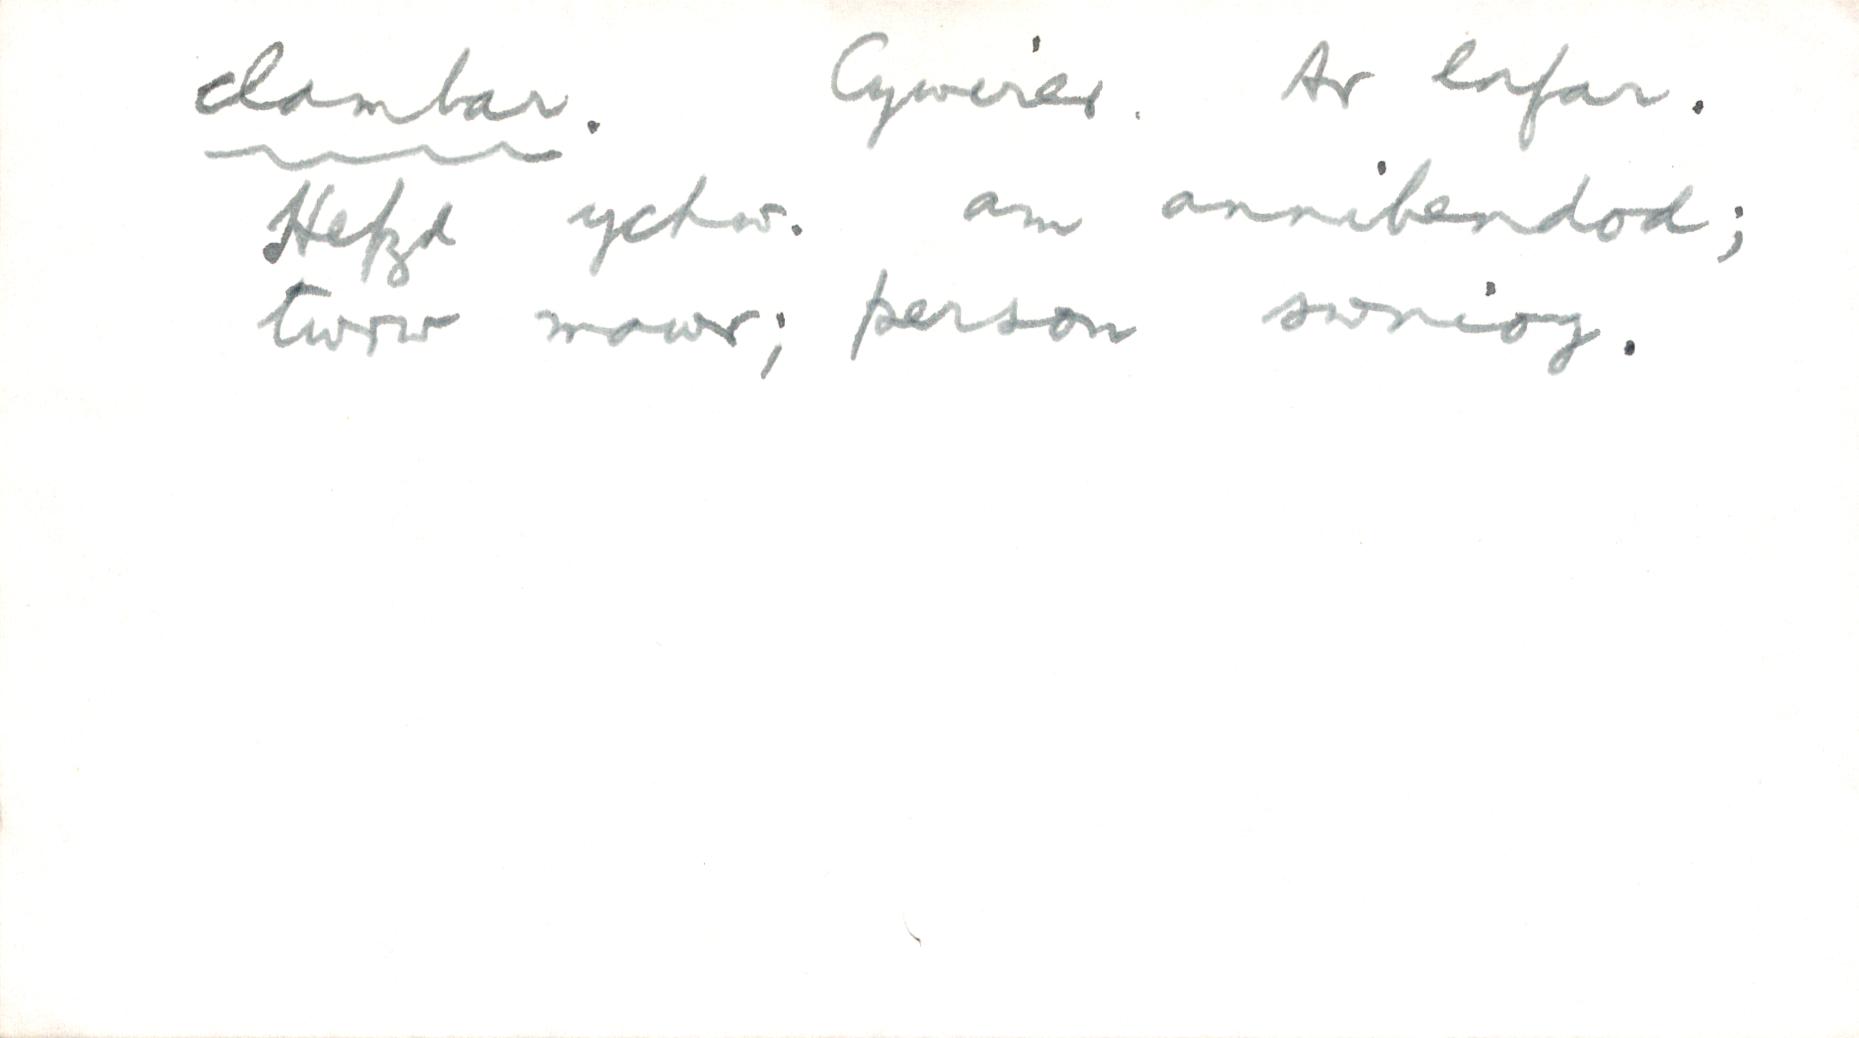 clambar. Cywirer. Ar lafar.
Hefyd ychw. am annibendod;
twrw mawr; person swniog.